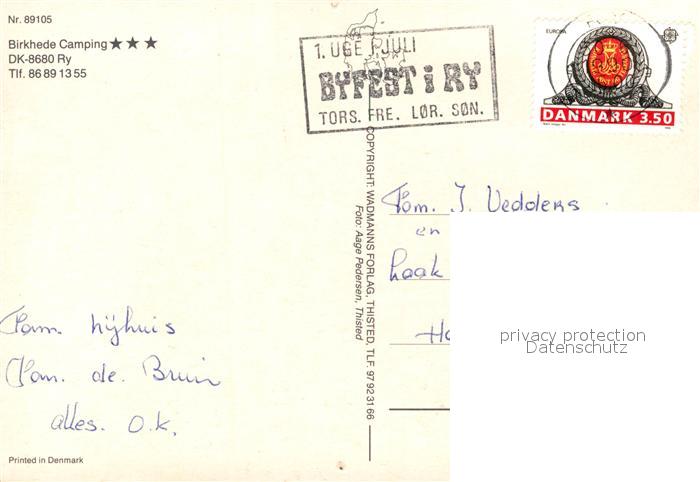 Nr. 89105
Birkhede Camping ★★★
DK-8680 Ry
Tlf. 86 89 13 55
1. UGE I JULI
BYFEST i RY
TORS. FRE. LØR. SØN.
EUROPA
DANMARK 3.50
COPYRIGHT: WADMANNS FORLAG, THISTED, TLF. 97 92 31 66
Foto: Aage Pedersen, Thisted
Fam. J. Vedders
en
Laak
privacy protection
Datenschutz
Fam. Nijhuis
Fam. de. Bruin
alles. O.K.
Printed in Denmark